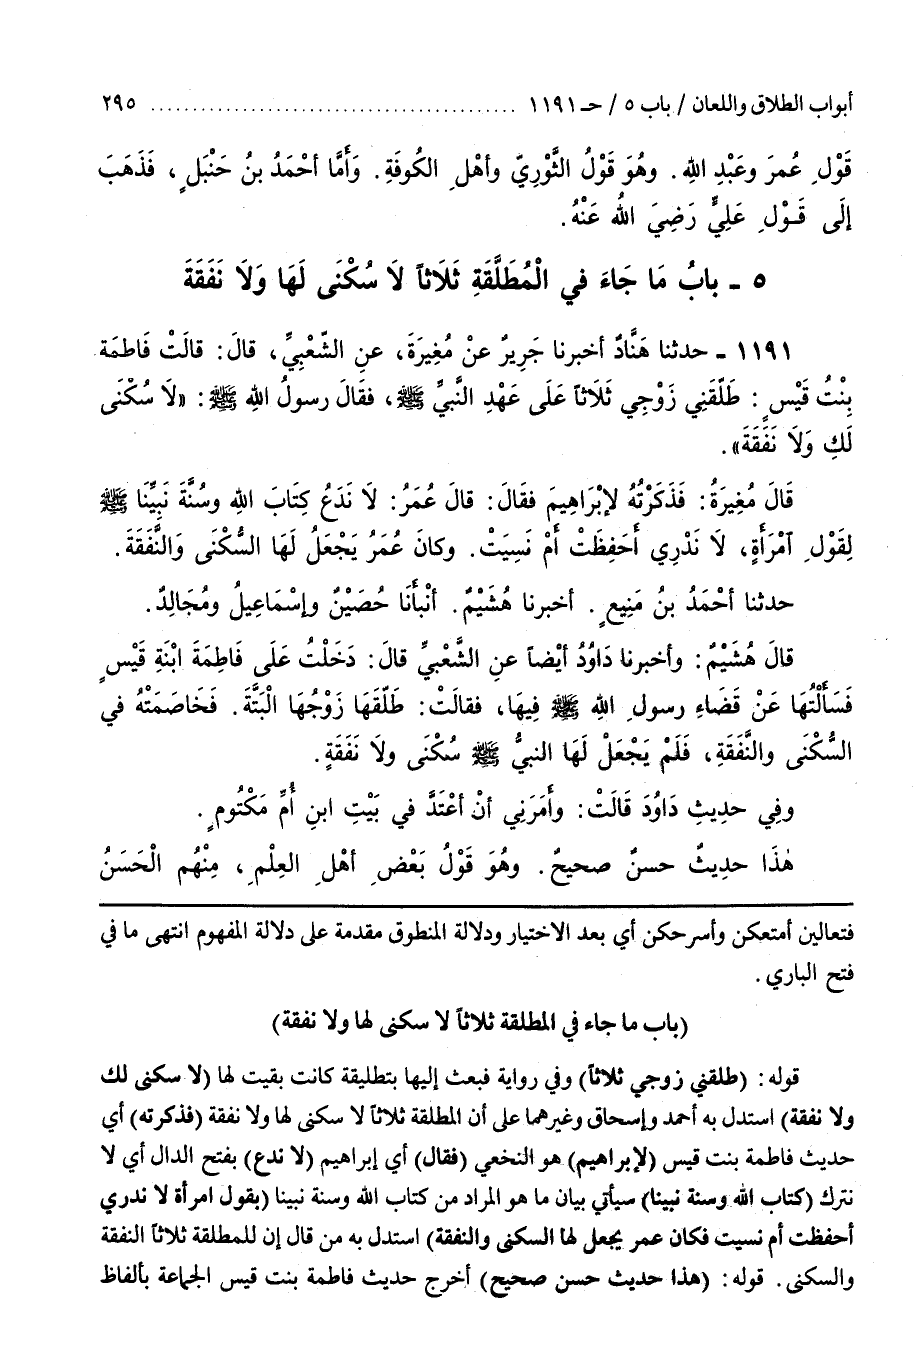 أبواب الطلاق واللعان / باب ٥ / حـ ١١٩١ ........................................ ٢٩٥
قَوْلِ عُمَرَ وعَبْدِ اللهِ. وهُوَ قَوْلُ الثَّوْرِيّ وأهْلِ الكُوفَةِ. وَأَمَّا أحْمَدُ بنُ حَنْبَلٍ، فَذَهَبَ
إلَى قَـوْلِ عَلِيٍّ رَضِيَ اللهُ عَنْهُ.
٥ - بابُ مَا جَاءَ في الْمُطَلَّقَةِ ثَلَاثاً لَا سُكْنَى لَهَا وَلَا نَفَقَةَ
١١٩١ - حدثنا هَنَّادٌ أخبرنا جَرِيرٌ عنْ مُغِيرَةَ، عنِ الشّعْبِيِّ، قالَ: قالَتْ فَاطِمَة
بِنْتُ قَيْسٍ: طَلَّقَنِي زَوْجِي ثَلَاثاً عَلَى عَهْدِ النَّبيِّ ﷺ، فقَالَ رسولُ اللهِ ﷺ: «لَا سُكْنَى
لَكِ وَلَا نَفَقَةَ».
قَالَ مُغِيرَةُ: فَذَكَرْتُهُ لإبْرَاهِيمَ فقَالَ: قالَ عُمَرُ: لَا نَدَعُ كِتَابَ اللهِ وسُنَّةَ نَبِيِّنَا ﷺ
لِقَوْلِ آمْرَأَةٍ، لَا نَدْرِي أَحَفِظَتْ أمْ نَسِيَتْ. وكانَ عُمَرُ يَجْعَلُ لَهَا السُّكْنَى وَالنَّفَقَةَ.
حدثنا أحْمَدُ بنُ مَنِيعٍ. أخبرنا هُشَيْمٌ. أنْبأَنَا حُصَيْنٌ وإسْمَاعِيلُ ومُجَالِدٌ.
قالَ هُشَيْمٌ: وأخبرنا دَاوُدُ أيْضاً عنِ الشَّعْبيِّ قالَ: دَخَلْتُ عَلَى فَاطِمَةَ ابْنَةِ قَيْسٍ
فَسَأَلْتُهَا عَنْ قَضَاءِ رسولِ اللهِ ﷺ فِيهَا، فقالَتْ: طَلّقَهَا زَوْجُهَا الْبَتَّةَ. فَخَاصَمَتْهُ في
السُّكْنَى والنَّفَقَةِ، فَلَمْ يَجْعَلْ لَهَا النبيُّ ﷺ سُكْنَى ولَا نَفَقَةٍ.
وفِي حديثِ دَاوُدَ قَالَتْ: وأَمَرَنِي أنْ أعْتَدَّ في بَيْتِ ابنِ أُمِّ مَكْتُومٍ.
هٰذَا حديثٌ حسنٌ صحيحٌ. وهُوَ قَوْلُ بَعْضِ أهْلِ العِلْمِ، مِنْهُم الْحَسَنُ
فتعالين أمتعكن وأسرحكن أي بعد الاختيار ودلالة المنطوق مقدمة على دلالة المفهوم انتهى ما في
فتح الباري.
(باب ما جاء في المطلقة ثلاثاً لا سكنى لها ولا نفقة)
قوله: (طلقني زوجي ثلاثاً) وفي رواية فبعث إليها بتطليقة كانت بقيت لها (لا سكنى لك
ولا نفقة) استدل به أحمد وإسحاق وغيرهما على أن المطلقة ثلاثاً لا سكنى لها ولا نفقة (فذكرته) أي
حديث فاطمة بنت قيس (لإبراهيم) هو النخعي (فقال) أي إبراهيم (لا ندع) بفتح الدال أي لا
نترك (كتاب الله وسنة نبينا) سيأتي بيان ما هو المراد من كتاب الله وسنة نبينا (بقول امرأة لا ندري
أحفظت أم نسيت فكان عمر يجعل لها السكنى والنفقة) استدل به من قال إن للمطلقة ثلاثاً النفقة
والسكنى. قوله: (هذا حديث حسن صحيح) أخرج حديث فاطمة بنت قيس الجماعة بألفاظ